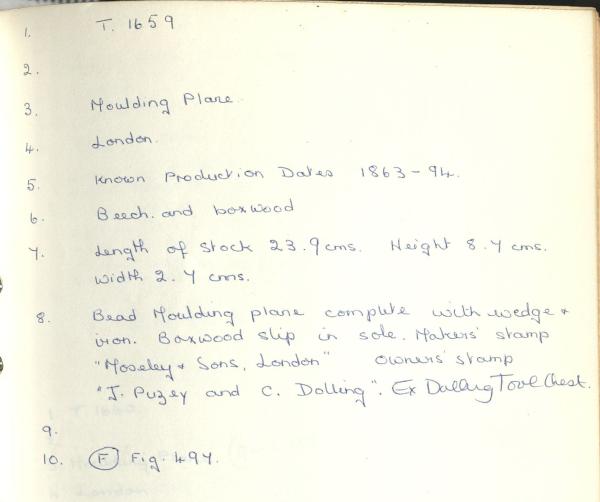 1. T. 1659
2.
3. Moulding Plane.
4. London.
5. Known Production Dates 1863-94.
6. Beech. and boxwood
7. Length of Stock 23.9cms. Height 8.7cms.
width 2.7 cms.
8. Bead Moulding plane complete with wedge &
iron. Boxwood slip in sole. Makers' stamp
"Moseley & Sons, London" owners' stamp
"J. Puzey and C. Dolling". Ex Dalling Tool Chest.
9.
10. (F) Fig. 497.